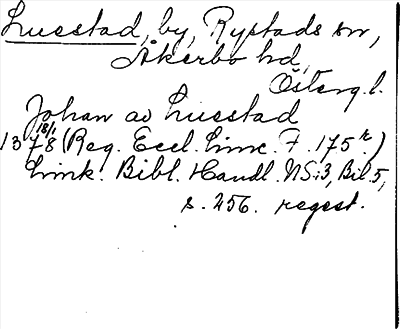 Lusstad, by, Rystads sn,
Åkerbo hd,
Österg. l.
Johan av Lusstad
1378 18/1 (Reg. Eccl. Linc. F. 175 r.)
Link. Bibl. Handl. NS:3, Bil. 5,
s. 256. regest.